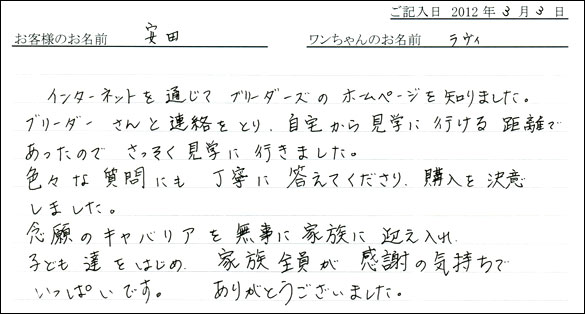 ご記入日 2012 年 3 月 3 日
お客様のお名前 安田 ワンちゃんのお名前 ラヴィ
インターネットを通じて ブリーダーズの ホームページを知りました。
ブリーダー さんと連絡をとり、自宅から見学に行ける 距離で
あったので さっそく見学に行きました。
色々な質問にも 丁寧に 答えてくださり、購入を決意
しました。
念願のキャバリアを無事に家族に迎え入れ、
子ども達をはじめ、家族全員が 感謝の気持ちで
いっぱいです。 ありがとうございました。